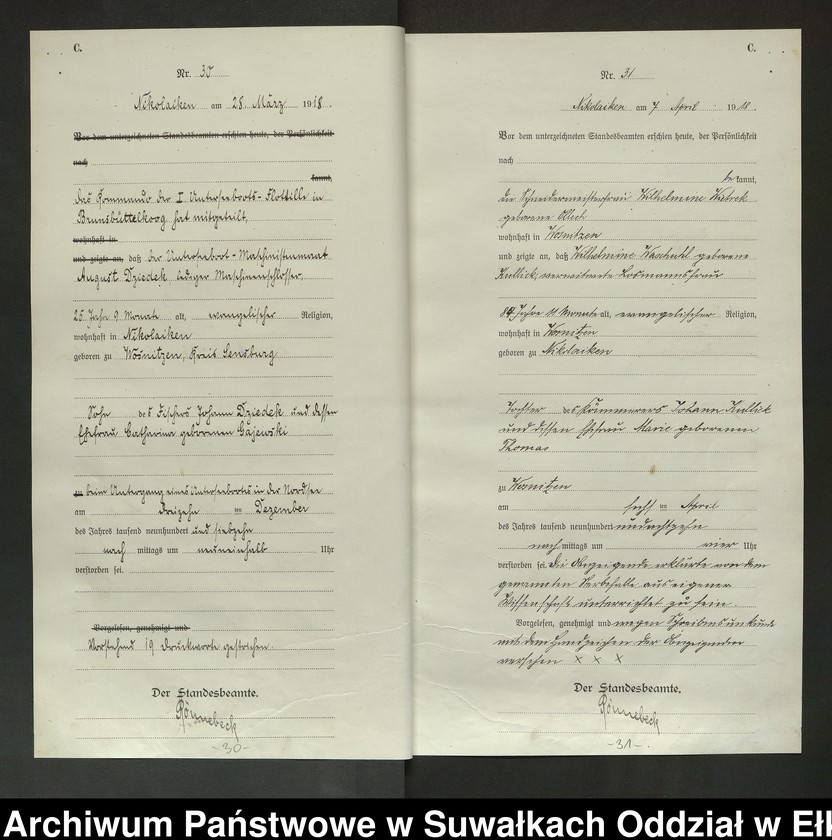 C.
Nr. 30
Nikolaiken am 28. März 1918.
Vor dem unterzeichneten Standesbeamten erschien heute, der Persönlichkeit
nach
kannt,
das Kommando der I Unterseeboots-Flottille in
Brunsbüttelkoog hat mitgeteilt,
wohnhaft in
und zeigte an, daß der Unterseeboot-Maschinistenmaat
August Dziedek lediger Maschinenschlosser,
25 Jahr 9 Monat alt, evangelischer Religion,
wohnhaft in Nikolaiken
geboren zu Wosnitzen, Kreis Sensburg
Sohn des Fischers Johann Dziedek und dessen
Ehefrau Catharina geborenen Gajewski
zu beim Untergang eines Unterseeboots in der Nordsee
am dreizehn ten Dezember
des Jahres tausend neunhundert und siebzehn
nach mittags um neuneinhalb Uhr
verstorben sei.
Vorgelesen, genehmigt und
Vorstehend 19 Druckworte gestrichen.
Der Standesbeamte.
Rönnebeck
-30-
C.
Nr. 31
Nikolaiken am 7 April 1918.
Vor dem unterzeichneten Standesbeamten erschien heute, der Persönlichkeit
nach
be kannt,
die Schneidermeisterfrau Wilhelmine
geborene
wohnhaft in Wosnitzen
und zeigte an, daß Wilhelmine geborene
Kullick, verwitwete Losmannsfrau
84 Jahre 11 Monate alt, evangelischer Religion,
wohnhaft in Wosnitzen
geboren zu Nikolaiken
Tochter des Kämmerers Johann Kullick
und dessen Ehefrau Marie geborenen
Thomas
zu Wosnitzen
am sechs ten April
des Jahres tausend neunhundert und achtzehn
nach mittags um vier Uhr
verstorben sei. Die Anzeigende erklärte von dem
genannten Sterbefalle aus eigener
Wissenschaft unterrichtet zu sein.
Vorgelesen, genehmigt und wegen Schreibensunkunde
mit dem Handzeichen der Anzeigenden
versehen X X X
Der Standesbeamte.
Rönnebeck
-31-
Archiwum Państwowe w Suwałkach Oddział w Eł